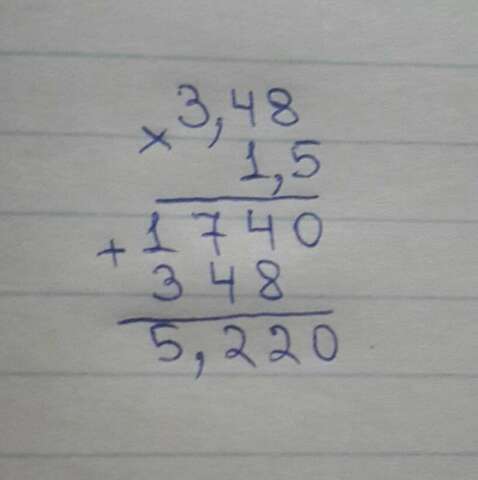 3,48
× 1,5
+ 1740
348
5,220